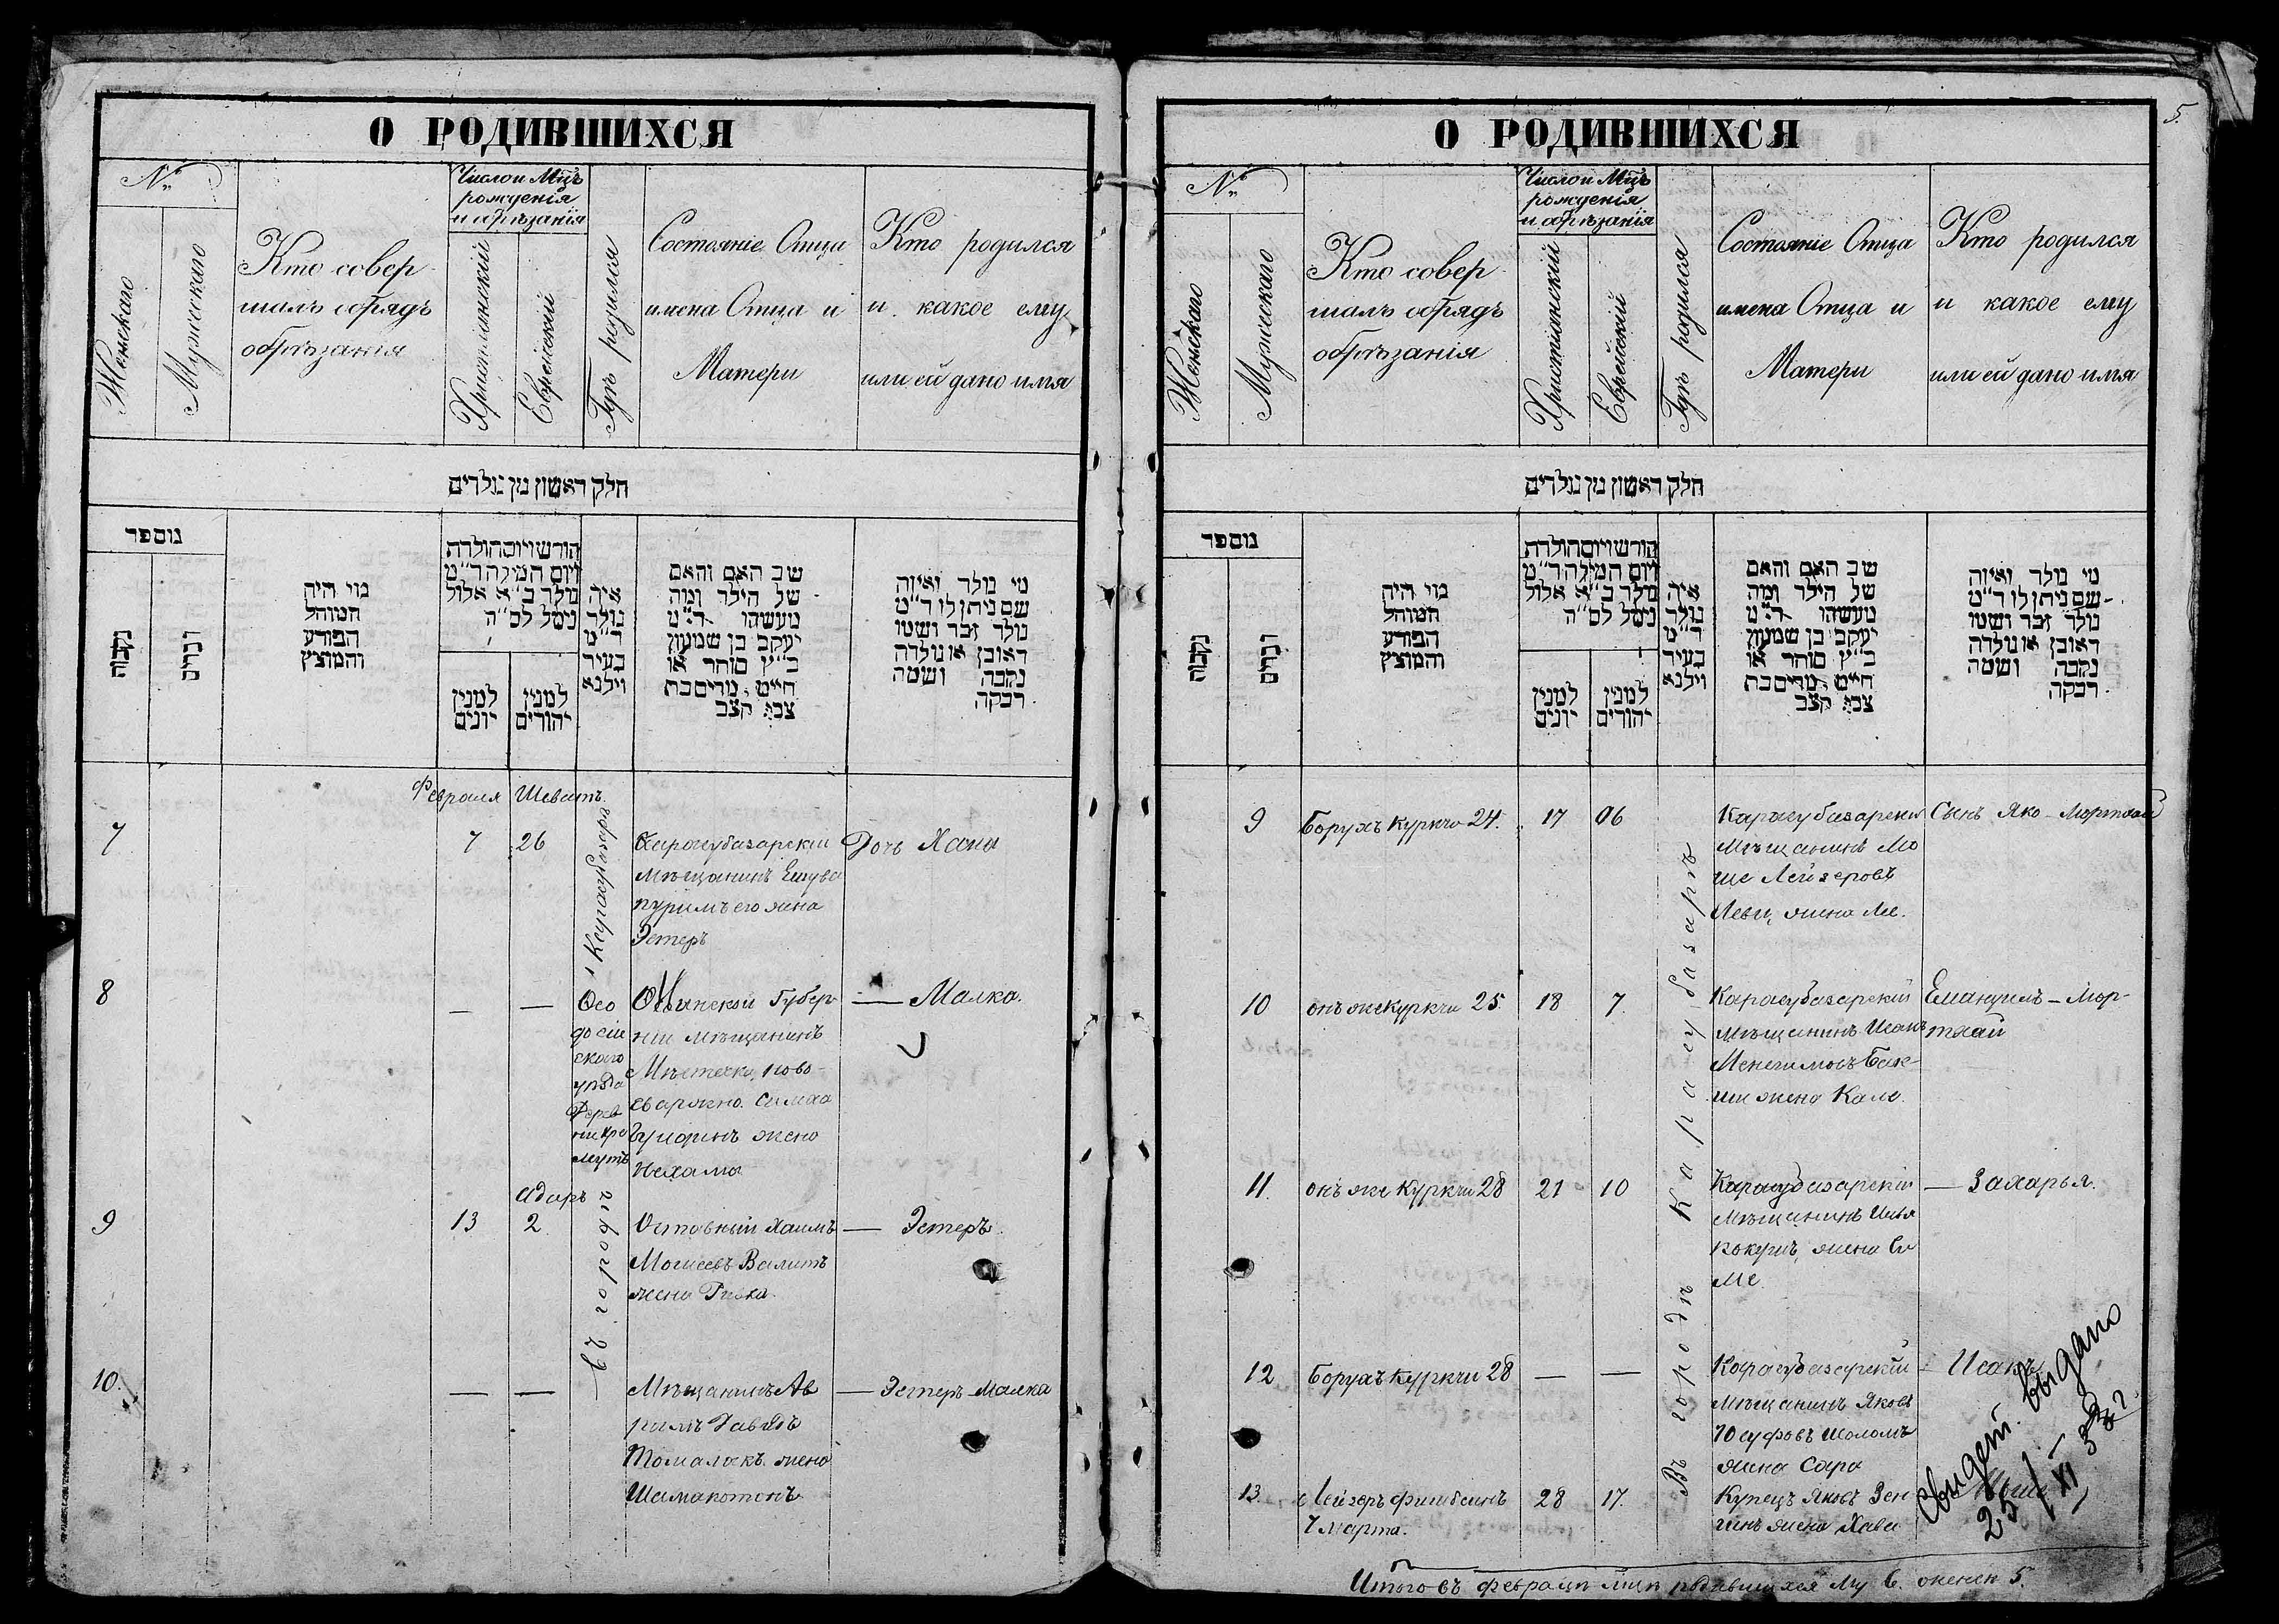 О РОДИВШИХСЯ
№
Женскаго
Мужескаго
Кто совер
шалъ обрядъ
обрѣзанія
Число и Мцъ
рожденія
и обрѣзанія
Христіанскій
Еврейскій
Гдѣ родился
Состояніе Отца
имена Отца и
Матери
Кто родился
и какое ему
или ей дано имя
חלק ראשון מן נולדים
מספר
נקבות
זכרים
מי היה
המוהל
הפורע
והמוצץ
חורש ויום הולדת
ויום המילה ד״מ
נולד ב״א אלול
נימל לס״ה
למנין
יונים
למנין
יהודים
איה
נולד
ד״מ
בעיר
וילנא
שב האם והאם
של הילד ומה
מעשהו ד״מ
יעקב בן שמעון
כ״ץ סוחר או
חייט מרים בת
צבי קצב
מי נולד ואיזה
שם ניתן לו ד״מ
נולד זכר ושמו
ראובן או נולדה
נקבה ושמה
רבקה
Февраля Шеватъ
7
7 26
Карасубазарскій
мѣщанинъ Ешува
пуримъ его жена
Эстеръ
Дочь Хана
8
— —
Ѳео
досій
скаго
уѣзда
Минской Губер
ніи мѣщанинъ
Мѣстечка ново-
жена
Нехама
— Малка.
Адаръ
9
13 2
Хаимъ
Моисеевъ Валитъ
жена Ривка
— Эстеръ.
въ городѣ Карасубазарѣ
10.
— —
Мѣщанинъ Ав
рамъ Давидъ
жена
— Эстеръ-Малка
О РОДИВШИХСЯ
5.
№
Женскаго
Мужескаго
Кто совер
шалъ обрядъ
обрѣзанія
Число и Мцъ
рожденія
и обрѣзанія
Христіанскій
Еврейскій
Гдѣ родился
Состояніе Отца
имена Отца и
Матери
Кто родился
и какое ему
или ей дано имя
חלק ראשון מן נולדים
מספר
נקבות
זכרים
מי היה
המוהל
הפורע
והמוצץ
חורש ויום הולדת
ויום המילה ד״מ
נולד ב״א אלול
נימל לס״ה
למנין
יונים
למנין
יהודים
איה
נולד
ד״מ
בעיר
וילנא
שב האם והאם
של הילד ומה
מעשהו ד״מ
יעקב בן שמעון
כ״ץ סוחר או
חייט מרים בת
צבי קצב
מי נולד ואיזה
שם ניתן לו ד״מ
נולד זכר ושמו
ראובן או נולדה
נקבה ושמה
רבקה
Въ городѣ Карасубазарѣ
9
Борухъ Куркчи 24.
17 06
Карасубазарскій
мѣщанинъ Мо
ше Лейзеровъ
Леви, жена Лее.
Сынъ Яко-Мортхай
10
онъ же Куркчи 25.
18 7.
Карасубазарскій
мѣщанинъ Исакъ
Менегимовъ Бак-
ши жена Кале
Емануилъ-Мор-
тхай
11.
онъ же Куркчи 28
21 10
Карасубазарскій
мѣщанинъ
жена
— Захарья.
12
Борухъ Куркчи 28
— —
Карасубазарскій
мѣщанинъ Яковъ
Юсуфовъ Шоломъ
жена Сара
— Исакъ
13.
Лейзеръ
7 Марта.
28 17.
Купецъ Яковъ Зен
гинъ жена Хава
Свидет. выдано
25/XI
Итого въ февралѣ мцѣ родившихся му 6. женск 5.